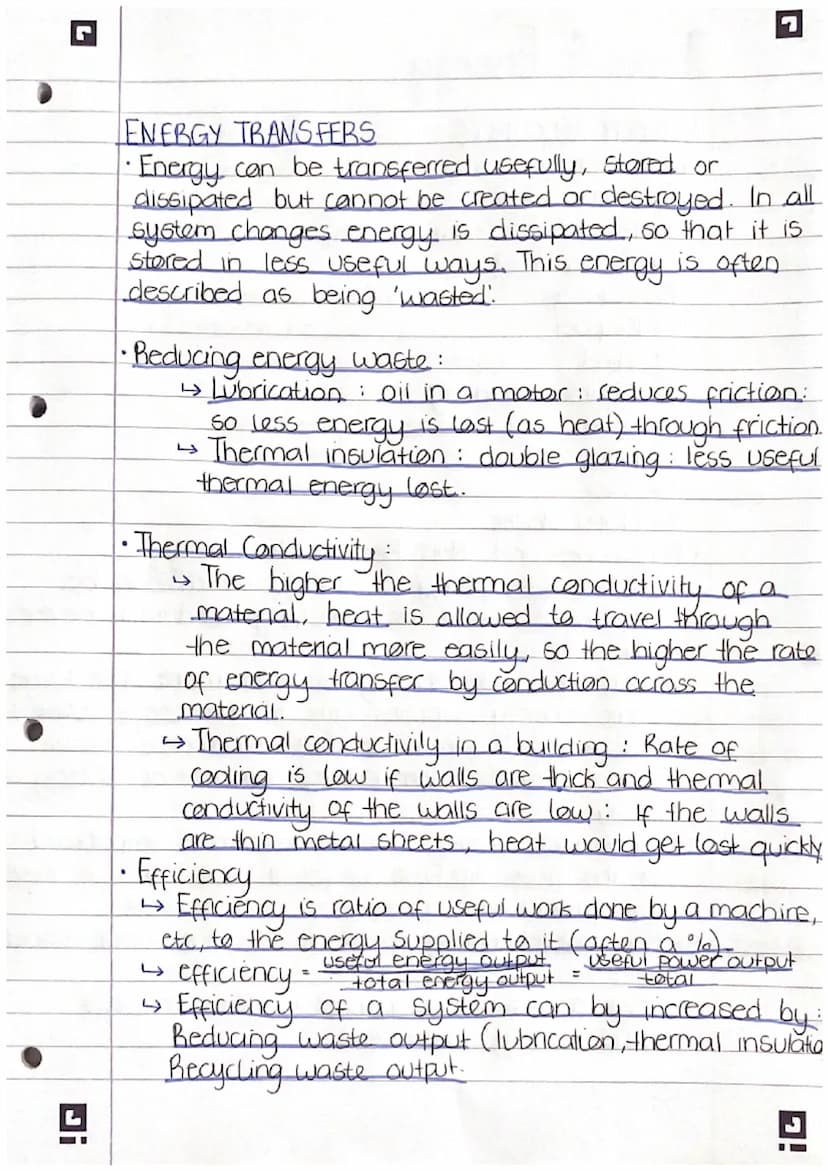 ENERGY TRANSFERS
· Energy can be transferred usefully, stored or
dissipated but cannot be created or destroyed. In all
system changes energy is dissipated, so that it is
stored in less useful ways. This energy is often
described as being 'wasted'.
· Reducing energy waste :
↳ Lubrication : oil in a motor : reduces friction :
so less energy is lost (as heat) through friction.
↳ Thermal insulation : double glazing : less useful
thermal energy lost.
· Thermal Conductivity :
↳ The higher the thermal conductivity of a
material, heat is allowed to travel through
the material more easily, so the higher the rate
of energy transfer by conduction across the
material.
↳ Thermal conductivily in a building : Rate of
cooling is low if walls are thick and thermal
conductivity of the walls are low : If the walls
are thin metal sheets, heat would get lost quickly
· Efficiency
↳ Efficiency is ratio of useful work done by a machine,
etc, to the energy supplied to it (often a %).
↳ efficiency = useful energy output / total energy output = useful power output / total
↳ Efficiency of a system can by increased by :
Reducing waste output (lubrication, thermal insulatio
Recycling waste output.